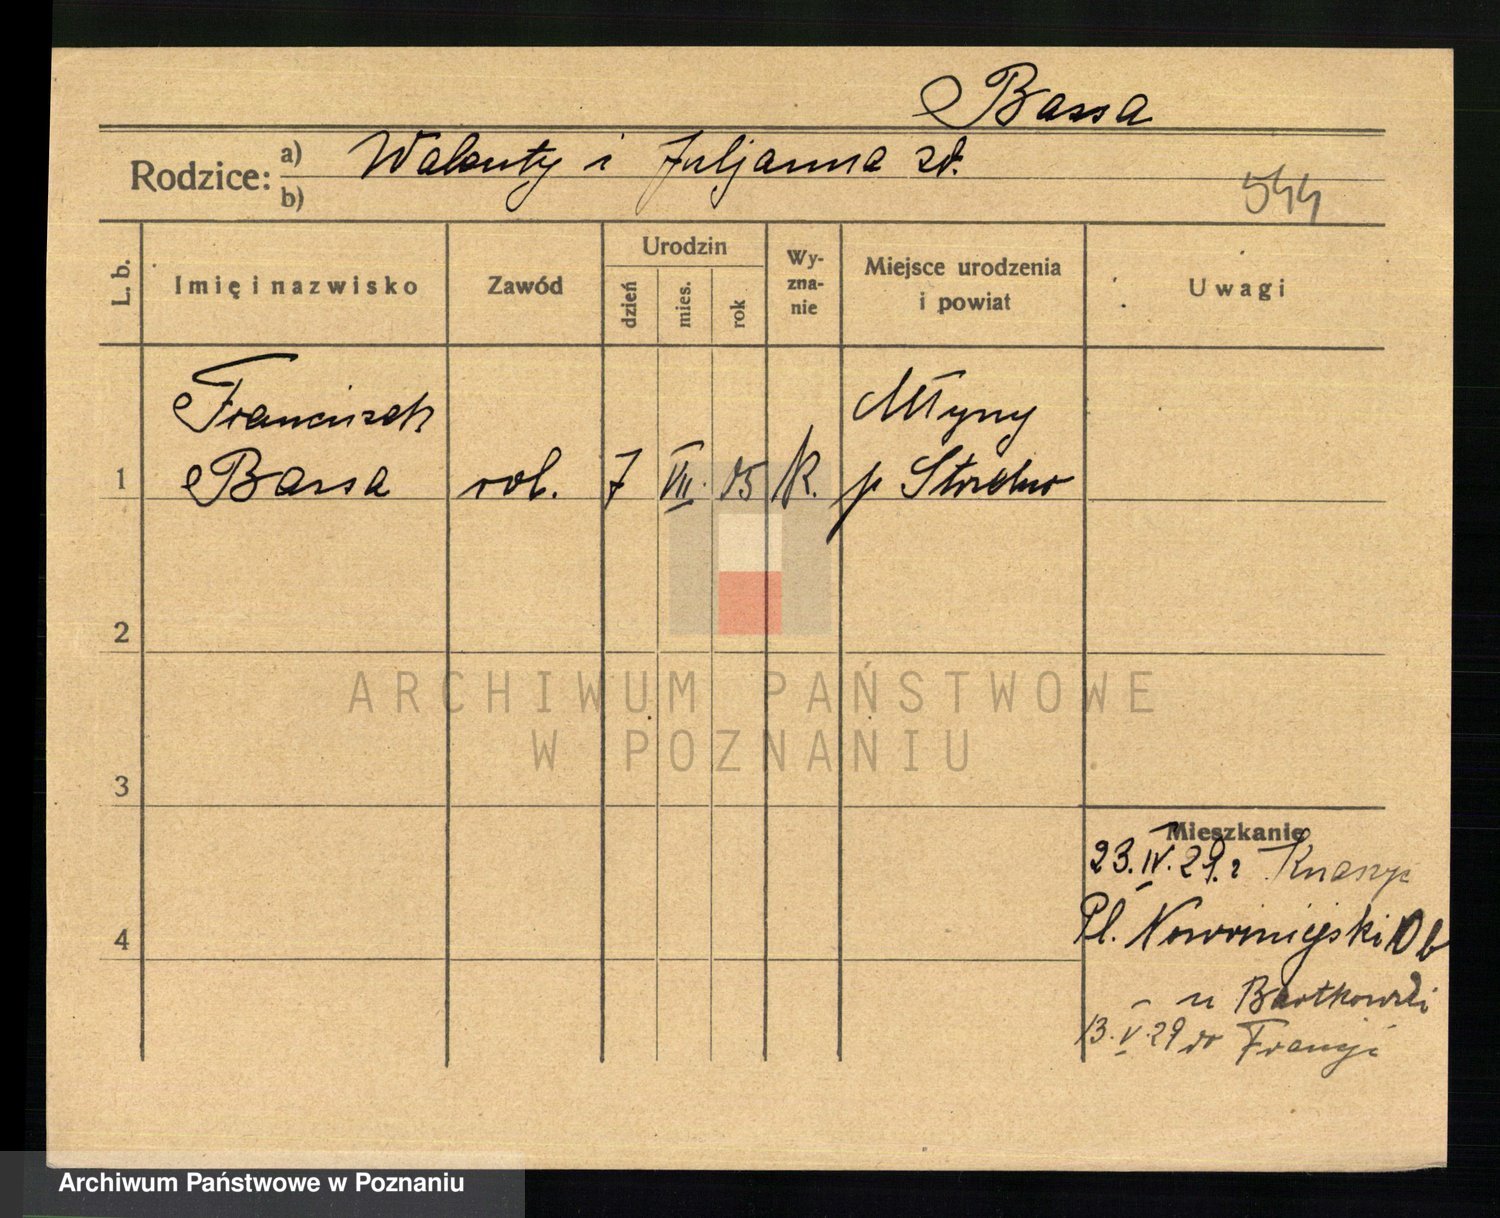 Bassa
Rodzice: a) Walenty i Juljanna zd.
b)
544
L. b.
Imię i nazwisko
Zawód
Urodzin
dzień
mies.
rok
Wy-
zna-
nie
Miejsce urodzenia
i powiat
Uwagi
Franciszek
Bassa
1
rob.
7
VII.
05
K.
Młyny
p Strzelno
2
3
4
Mieszkanie
23.IV.29.r
Pl. Nowomiejski 10 b
u Bartkowski
13.V.29 do Francji
ARCHIWUM PAŃSTWOWE
W POZNANIU
Archiwum Państwowe w Poznaniu